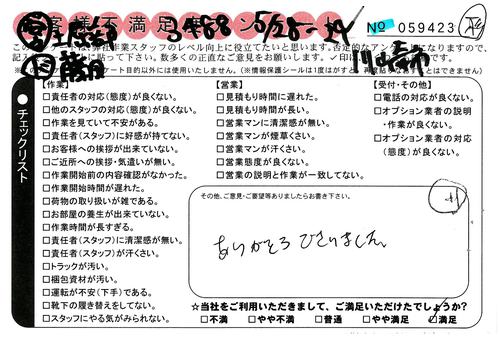 お客様不満足アンケート
3488 5/28
№ 059423
このアンケートは、弊社作業スタッフのレベル向上に役立てたいと思います。否定的なアンケートになりますので、
数多くの正直なご意見をお願いします。
アンケート目的以外には使用いたしません。(※情報保護シールは1度はがすと、再度貼れません)
●チェックリスト
【作業】
□責任者の対応(態度)が良くない。
□他のスタッフの対応(態度)が良くない。
□作業を見ていて不安がある。
□責任者(スタッフ)に好感が持てない。
□お客様への挨拶が出来ていない。
□ご近所への挨拶・気遣いが無い。
□作業開始前の内容確認がなかった。
□作業開始時間が遅れた。
□荷物の取り扱いが雑である。
□お部屋の養生が出来ていない。
□作業時間が長すぎる。
□責任者(スタッフ)に清潔感が無い。
□責任者(スタッフ)が汗くさい。
□トラックが汚い。
□梱包資材が汚い。
□運転が不安(下手)である。
□靴下の履き替えをしてない。
□スタッフにやる気がみられない。
【営業】
□見積もり時間に遅れた。
□見積もり時間が長い。
□営業マンに清潔感が無い。
□営業マンが煙草くさい。
□営業マンが汗くさい。
□営業態度が良くない。
□営業の説明と作業が一致してない。
【受付・その他】
□電話の対応が良くない。
□オプション業者の説明
・作業が良くない。
□オプション業者の対応
(態度)が良くない。
その他、ご意見・ご要望等ありましたらお書き下さい。
ありがとうございました。
☆当社をご利用いただきまして、ご満足いただけたでしょうか?
□不満 □やや不満 □普通 □やや満足 ☑満足